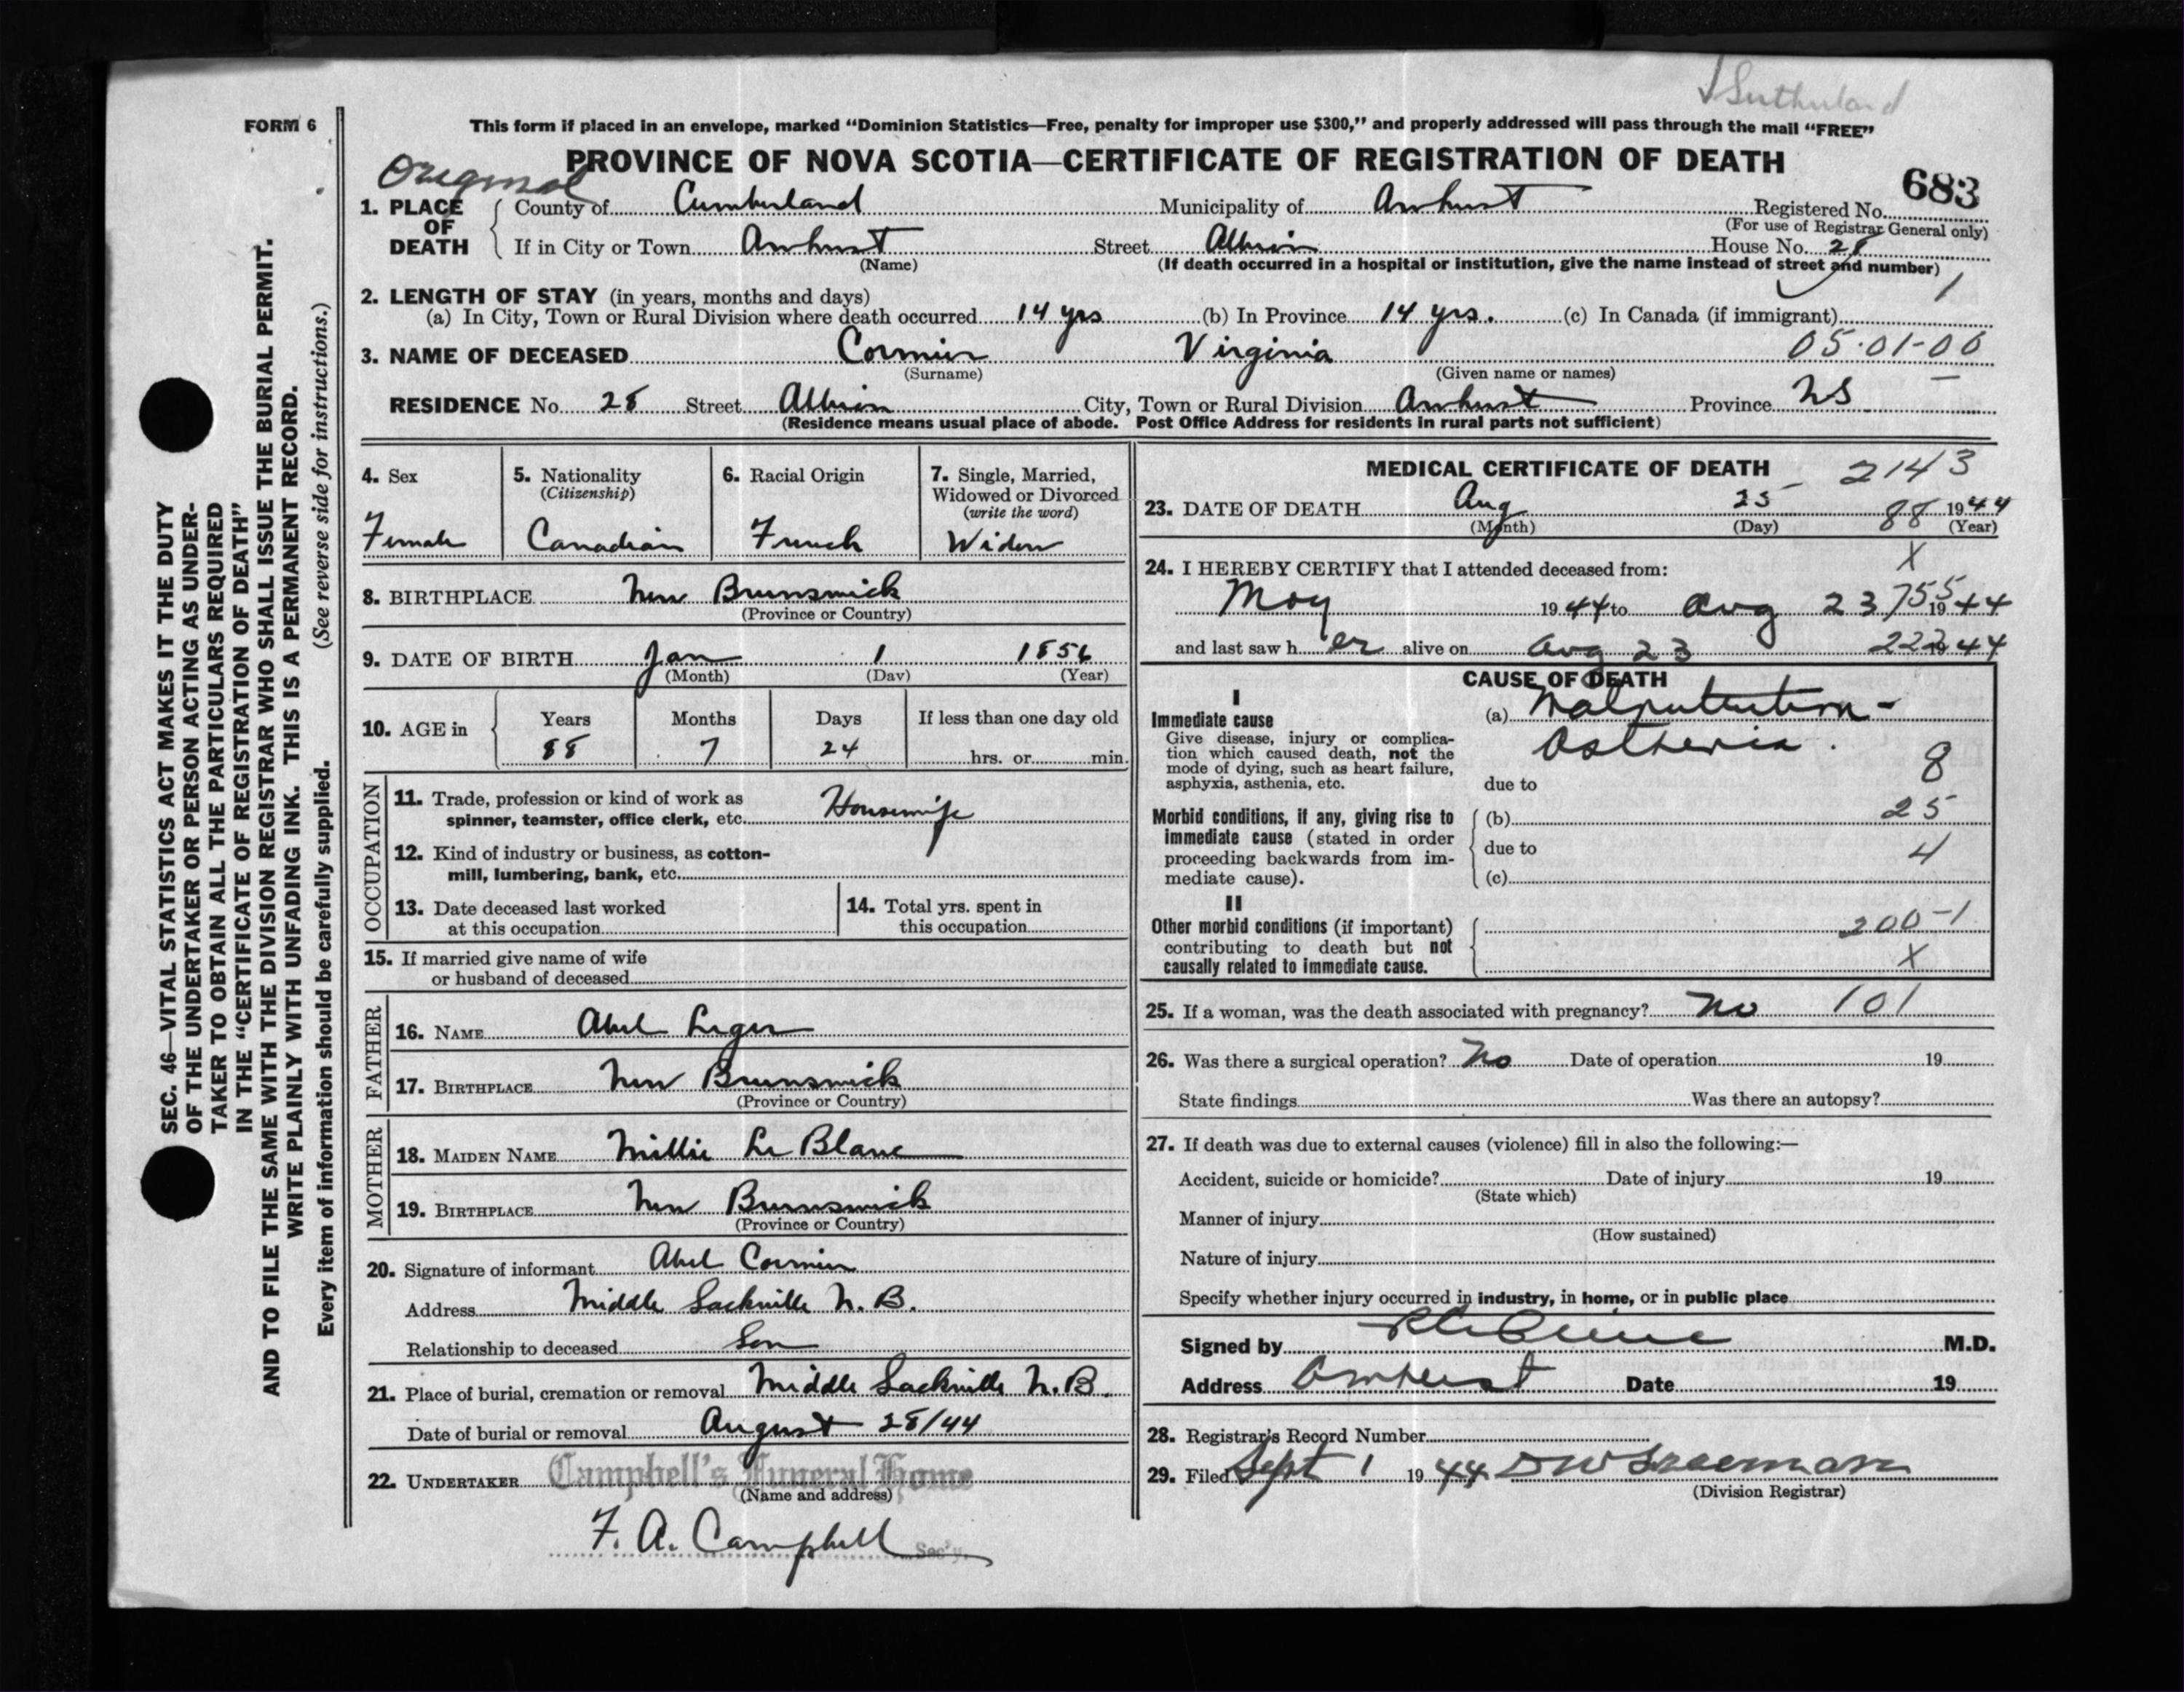 Sutherland
FORM 6
This form if placed in an envelope, marked "Dominion Statistics—Free, penalty for improper use $300," and properly addressed will pass through the mail "FREE"
PROVINCE OF NOVA SCOTIA—CERTIFICATE OF REGISTRATION OF DEATH
Original
683
1. PLACE OF DEATH
County of Cumberland Municipality of Amherst Registered No.
(For use of Registrar General only)
If in City or Town Amherst Street Albion House No. 28
(Name) (If death occurred in a hospital or institution, give the name instead of street and number)
1
2. LENGTH OF STAY (in years, months and days)
(a) In City, Town or Rural Division where death occurred 14 yrs (b) In Province 14 yrs. (c) In Canada (if immigrant)
3. NAME OF DECEASED Cormier Virginia 05-01-06
(Surname) (Given name or names)
RESIDENCE No. 28 Street Albion City, Town or Rural Division Amherst Province NS
(Residence means usual place of abode. Post Office Address for residents in rural parts not sufficient)
4. Sex
Female
5. Nationality
(Citizenship)
Canadian
6. Racial Origin
French
7. Single, Married,
Widowed or Divorced
(write the word)
Widow
8. BIRTHPLACE New Brunswick
(Province or Country)
9. DATE OF BIRTH Jan 1 1856
(Month) (Day) (Year)
10. AGE in
Years Months Days If less than one day old
88 7 24 hrs. or min.
OCCUPATION
11. Trade, profession or kind of work as
spinner, teamster, office clerk, etc. Housewife
12. Kind of industry or business, as cotton-
mill, lumbering, bank, etc.
13. Date deceased last worked
at this occupation
14. Total yrs. spent in
this occupation
15. If married give name of wife
or husband of deceased
FATHER
16. NAME Abel Leger
17. BIRTHPLACE New Brunswick
(Province or Country)
MOTHER
18. MAIDEN NAME Millie Le Blanc
19. BIRTHPLACE New Brunswick
(Province or Country)
20. Signature of informant Abel Cormier
Address Middle Sackville N. B.
Relationship to deceased Son
21. Place of burial, cremation or removal Middle Sackville N. B.
Date of burial or removal August 28/44
22. UNDERTAKER Campbell's Funeral Home
(Name and address)
F. A. Campbell Sec'y.
MEDICAL CERTIFICATE OF DEATH 2143
23. DATE OF DEATH Aug 25 88 1944
(Month) (Day) (Year)
X
24. I HEREBY CERTIFY that I attended deceased from:
May 1944 to Aug 23 755 1944
and last saw her alive on Aug 23 222 1944
CAUSE OF DEATH
I
Immediate cause
Give disease, injury or complica-
tion which caused death, not the
mode of dying, such as heart failure,
asphyxia, asthenia, etc.
(a) Malnutrition -
Asthenia.
8
due to
Morbid conditions, if any, giving rise to
immediate cause (stated in order
proceeding backwards from im-
mediate cause).
(b) 25
due to 4
(c)
II
Other morbid conditions (if important)
contributing to death but not
causally related to immediate cause.
200-1
X
25. If a woman, was the death associated with pregnancy? No 101
26. Was there a surgical operation? No Date of operation 19
State findings Was there an autopsy?
27. If death was due to external causes (violence) fill in also the following:—
Accident, suicide or homicide? Date of injury 19
(State which)
Manner of injury
(How sustained)
Nature of injury
Specify whether injury occurred in industry, in home, or in public place
Signed by M.D.
Address Amherst Date 19
28. Registrar's Record Number
29. Filed Sept 1 1944
(Division Registrar)
SEC. 46—VITAL STATISTICS ACT MAKES IT THE DUTY
OF THE UNDERTAKER OR PERSON ACTING AS UNDER-
TAKER TO OBTAIN ALL THE PARTICULARS REQUIRED
IN THE "CERTIFICATE OF REGISTRATION OF DEATH"
AND TO FILE THE SAME WITH THE DIVISION REGISTRAR WHO SHALL ISSUE THE BURIAL PERMIT.
WRITE PLAINLY WITH UNFADING INK. THIS IS A PERMANENT RECORD.
Every item of information should be carefully supplied. (See reverse side for instructions.)